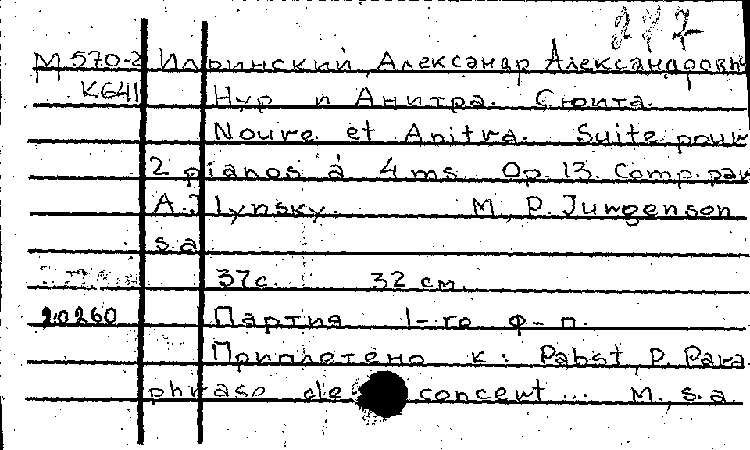 247
M 570-2 Ильинский, Александр Александрович
K641 Нур и Анитра. Сюита.
Noure et Anitra. Suite pour
2 pianos à 4 ms. Op. 13. Comp. par
A. Ilynsky. M., P. Jurgenson
s.a.
37с. 32 см.
20260 Партия 1-го ф-п.
Приплетено к: Pabst, P. Para
phrase de concert ... M., s.a.